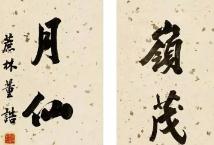 嶺茂
月仙
蔗林董誥